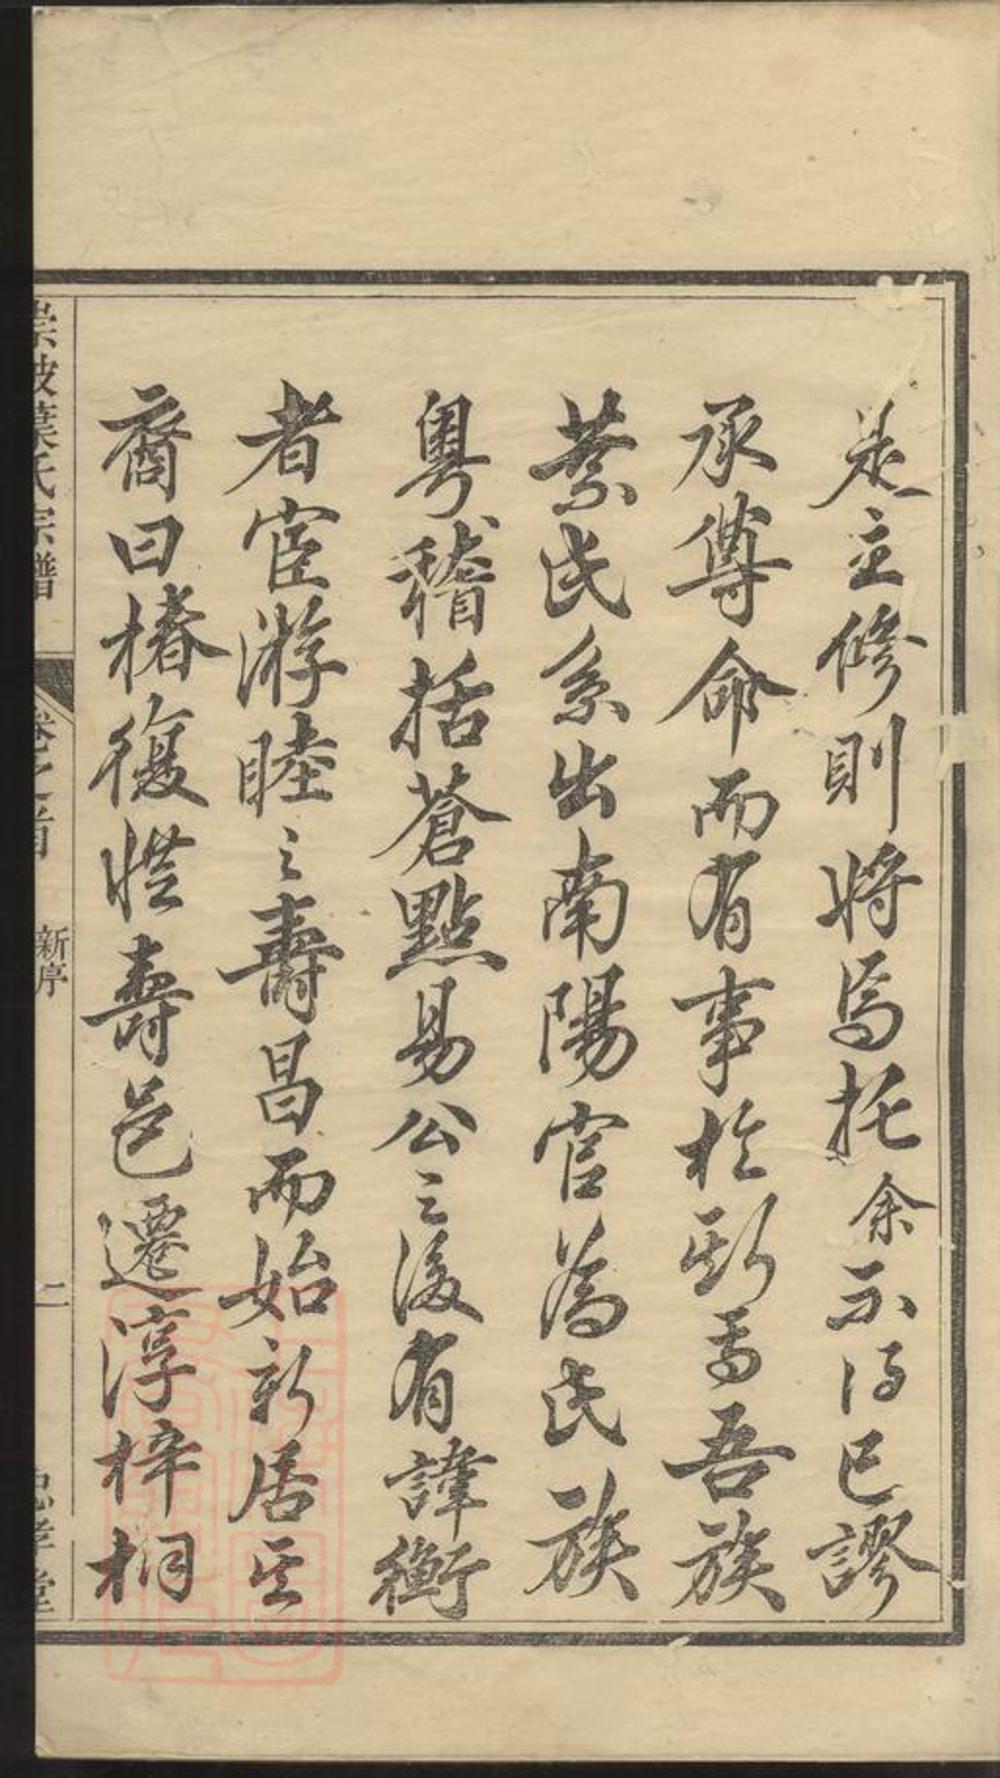 是主修則將焉托余不得已謬
承尊命而有事於斯焉吾族
葉氏系出南陽官為氏族
粤稽括蒼點易公之後有諱衡
者宦游睦之壽昌而始新居至
裔曰椿復湛壽邑遷淳梓桐
葉氏宗譜
卷之首
新序
二
忠孝堂